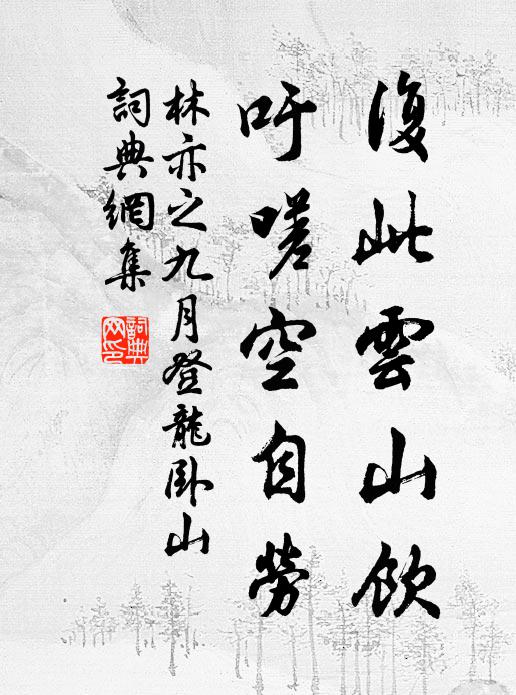 復此雲山飲
吁嗟空自勞
林亦之九月登龍臥山
詞典網集
詞典
网印